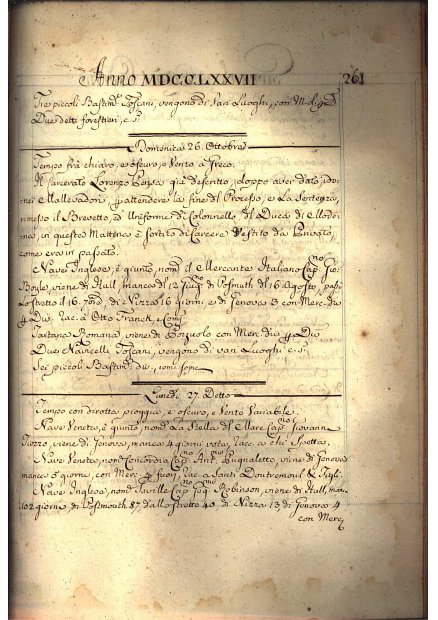 Anno MDCCLXXVII 261
Tre piccoli Bastim.ti Toscani, vengono di vari Luoghi, con M. d.
Due detti forestieri, c. s.
Domenica 26. Ottobre
Tempo frà chiaro, e oscuro, e Vento a Greco.
Il carcerato Lorenzo già descritto, doppo aver dato, ido-
nei Mallevadori, attendere la fine del Processo, e La Sentenza,
rimesso il Brevetto, ed Uniforme di Colonnello del Duca di Mode-
na, in questa Mattina è sortito di Carcere Vestito da Privato,
come era in passato.
Nave Inglese, è giunto, nom.ta il Mercante Italiano Cap.no Gio:
Boyle, viene di Hull, manca del 12 Giug.no di Posmuth del 16 Agosto, pas.
Lo stretto il 16. 7bre, di Nizza 16 giorni, e di Genova 3 con Merc. div.
Rac. a Otto Franck, e Comp.
Tartana Romana, viene di Pozzuolo con Merc. div.
Due Navicelli Toscani, vengono di vari Luoghi c. s.
Sei piccoli Bastim.ti div. come sopra
Lunedi 27. Detto
Tempo con dirotta pioggia, e oscuro, e Vento Variabile.
Nave Veneta, è giunto, nom.ta La Stella del Mare Cap.no Giovanni
viene di Genova, manca 4 giorni vota, Rac. a chi Spetta.
Nave Veneta, nom.ta Concordia Cap.no Ant.nio Bugnaletto, viene di Genova
manca 5 giorni, con Merc. fuori, Rac. a Santi Dontremoul & Figli.
Nave Inglese, nom.ta Cap.no Robinson, viene di Hull, man.
102 giorni, di Postmouth 87 dallo stretto 40, di Nizza 13 di Genova 4
con Merc.